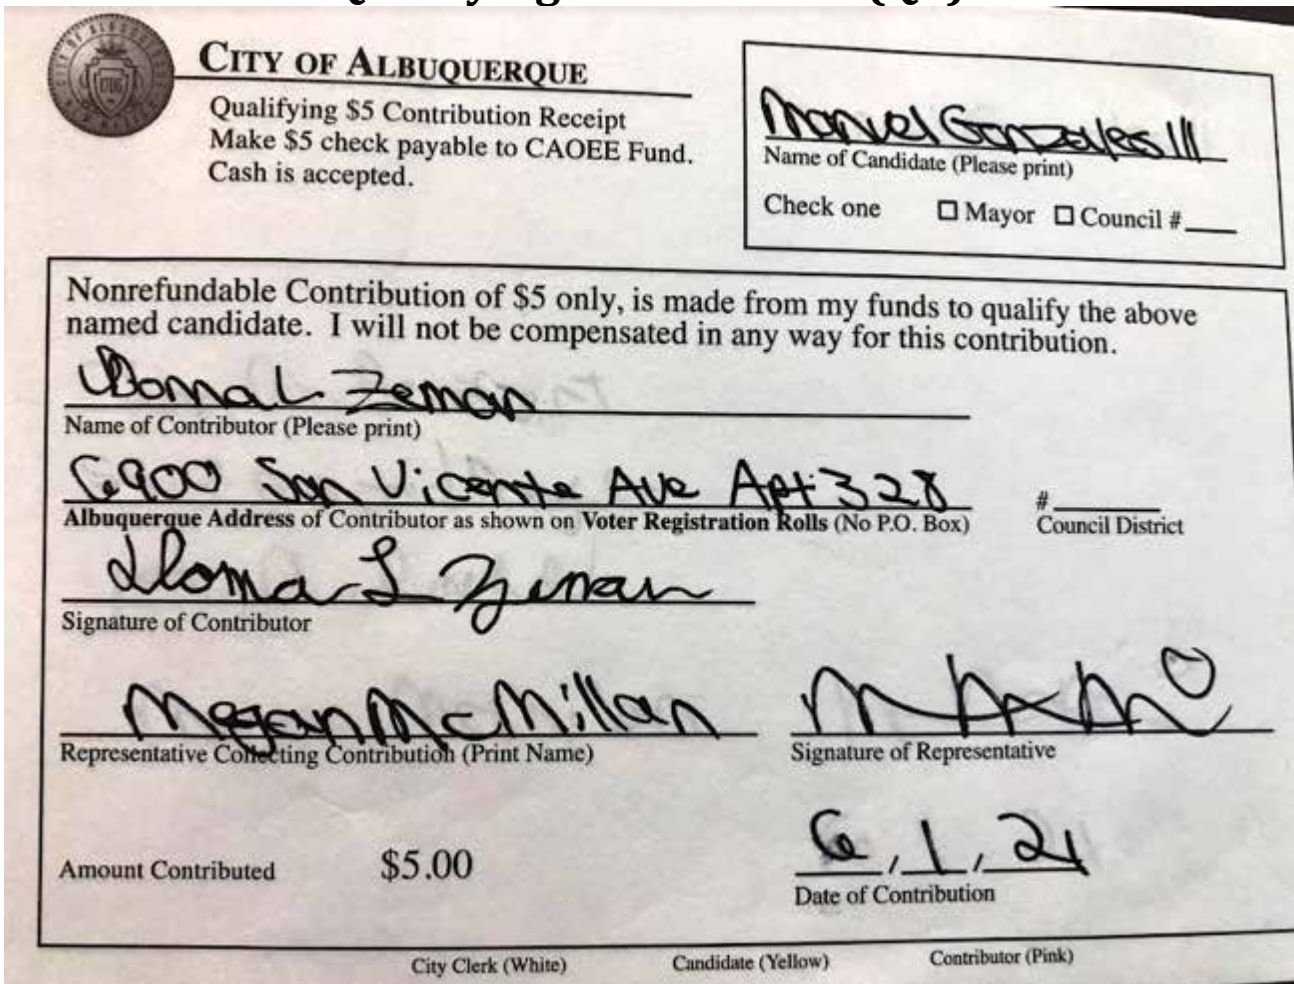 CITY OF ALBUQUERQUE
Qualifying $5 Contribution Receipt
Make $5 check payable to CAOEE Fund.
Cash is accepted.
Manuel Gonzales III
Name of Candidate (Please print)
Check one □ Mayor □ Council #____
Nonrefundable Contribution of $5 only, is made from my funds to qualify the above
named candidate. I will not be compensated in any way for this contribution.
Donna L Zeman
Name of Contributor (Please print)
6900 San Vicente Ave Apt 328
Albuquerque Address of Contributor as shown on Voter Registration Rolls (No P.O. Box)
#____
Council District
Donna L Zeman
Signature of Contributor
Megan McMillan
Representative Collecting Contribution (Print Name)
Signature of Representative
Amount Contributed $5.00
6, 1, 21
Date of Contribution
City Clerk (White) Candidate (Yellow) Contributor (Pink)